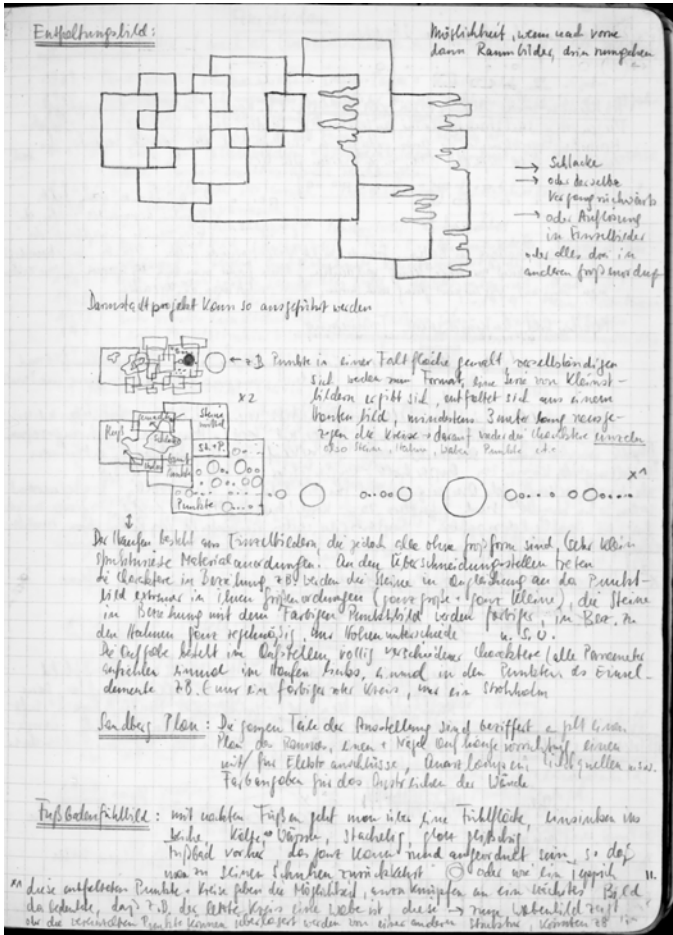 Entfaltungsbild:
Möglichkeit, wenn nach vorne
dann Raumbilder, drin rumgehen
→ Schlacke
→ oder derselbe
Vorgang rückwärts
→ oder Auflösung
in Einzelbilder
oder alles das in
anderen Größenordnungen
Darmstadtprojekt kann so ausgeführt werden
← z.B. Punkte in einer Faltfläche gemalt, verselbständigen
sich, werden zum Format, eine Serie von Kleinst-
bildern ergibt sich, entfaltet sich aus einem
Kastenbild, mindestens 3 meter lang
x2
die Kreise darauf die Charaktere einzeln
also Steine, Halme, Punkte etc
Fluß
Steine
St. + P.
Punkte
Punkte
x1
Der Haufen besteht aus Einzelbildern, die jedoch alle ohne Großform sind, (sehr kleine
strukturierte Materialanordnungen. An den Überschneidungsstellen treten
die Charaktere in Beziehung z.B. werden die Steine in Angleichung an das Punkt-
bild extremer in ihren Größenordnungen (ganz große + ganz kleine), die Steine
in Beziehung mit dem Farbigen Punktbild werden farbiger, in Bez. zu
den Halmen ganz regelmäßig, nur Höhenunterschiede u. s. w.
Die Aufgabe besteht im Aufstellen völlig verschiedener Charaktere (alle Parameter
einmal im Haufen, einmal in den Punkten als Einzel-
elemente z.B. (nur ein farbiger roter Kreis, nur ein Strohhalm
Sandberg Plan: Die ganzen Teile der Ausstellung sind beziffert es gibt einen
Plan des Raumes, einen + Nagel Aufhängevorrichtung, einen
mit/für Elektroanschlüsse, Quarzlampen, Lichtquellen usw.
Farbangaben für das Anstreichen der Wände
Fußbodenfühlbild: mit nackten Füßen geht man über eine Fühlfläche, einsinken ins
weiche Kälte, Wärme, stachelig, glatt glitschig
Fußbad vorher, das ganz kann rund angeordnet sein, so daß
man zu seinen Schuhen zurückkehrt oder wie ein Teppich
x1 diese entfalteten Punkte + Kreise geben die Möglichkeit, anzuknüpfen an ein nächstes Bild
das bedeutet, daß z.B. der letzte Kreis eine Wabe ist diese → zum Wabenbild
oder die vereinzelten Punkte können überlagert werden von einer anderen Struktur, könnten z.B.